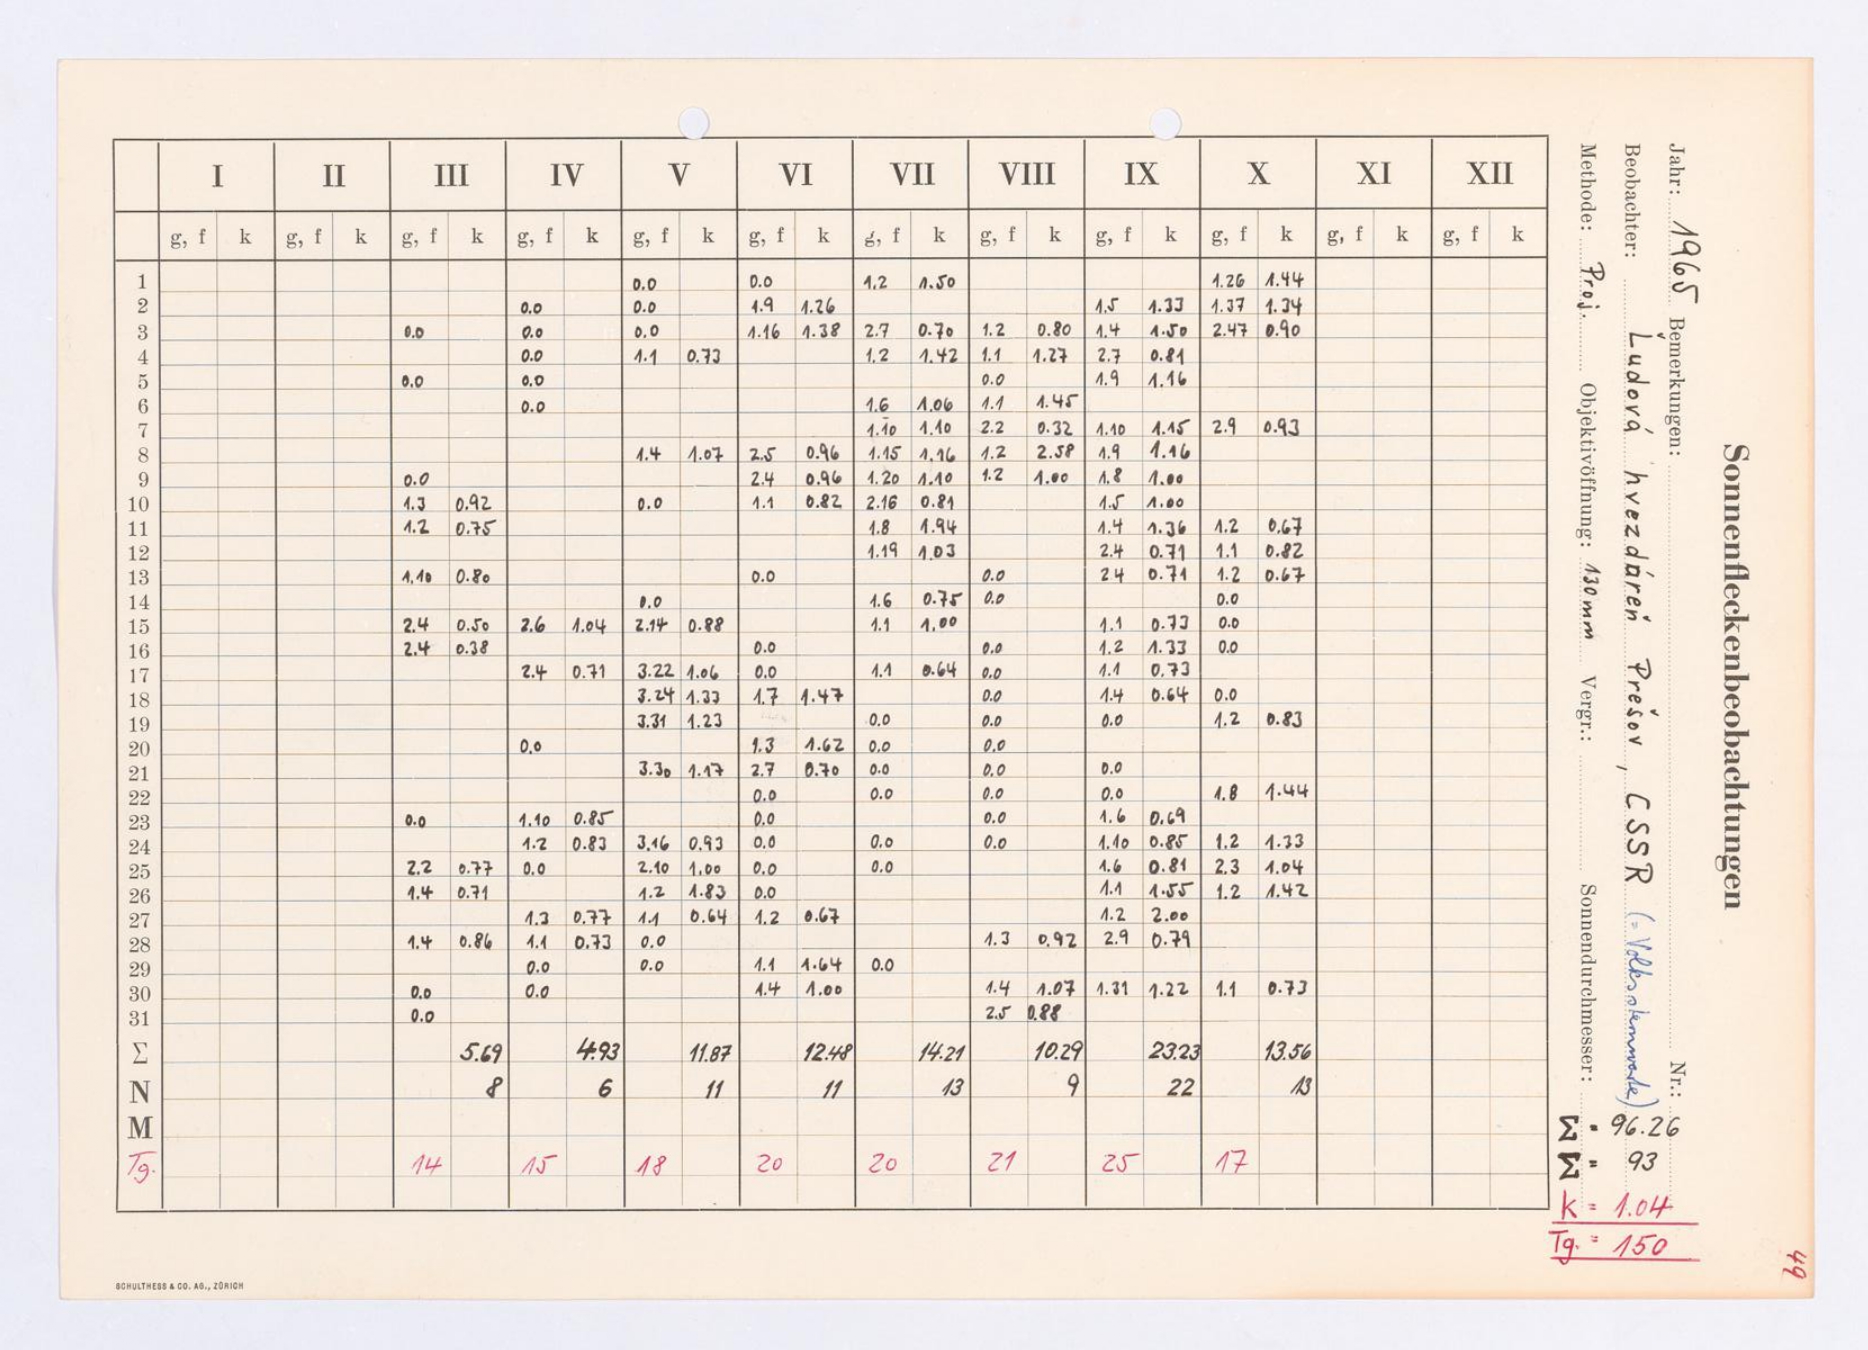 Sonnenfleckenbeobachtungen
Jahr: 1965 Bemerkungen: Nr.:
Beobachter: Ľudová hvezdáreň Prešov, ČSSR (= Volkssternwarte)
Methode: Proj. Objektivöffnung: 130mm Vergr.: Sonnendurchmesser:
I II III IV V VI VII VIII IX X XI XII
g, f k g, f k g, f k g, f k g, f k g, f k g, f k g, f k g, f k g, f k g, f k g, f k
1 0.0 0.0 1.2 1.50 1.26 1.44
2 0.0 0.0 1.9 1.26 1.5 1.33 1.37 1.34
3 0.0 0.0 0.0 1.16 1.38 2.7 0.70 1.2 0.80 1.4 1.50 2.47 0.90
4 0.0 1.1 0.73 1.2 1.42 1.1 1.27 2.7 0.81
5 0.0 0.0 0.0 1.9 1.16
6 0.0 1.6 1.06 1.1 1.45
7 1.10 1.10 2.2 0.32 1.10 1.15 2.9 0.93
8 1.4 1.07 2.5 0.96 1.15 1.16 1.2 2.58 1.9 1.16
9 0.0 2.4 0.96 1.20 1.10 1.2 1.00 1.8 1.00
10 1.3 0.92 0.0 1.1 0.82 2.16 0.81 1.5 1.00
11 1.2 0.75 1.8 1.94 1.4 1.36 1.2 0.67
12 1.19 1.03 2.4 0.71 1.1 0.82
13 1.10 0.80 0.0 0.0 2.4 0.71 1.2 0.67
14 0.0 1.6 0.75 0.0 0.0
15 2.4 0.50 2.6 1.04 2.14 0.88 1.1 1.00 1.1 0.73 0.0
16 2.4 0.38 0.0 0.0 1.2 1.33 0.0
17 2.4 0.71 3.22 1.06 0.0 1.1 0.64 0.0 1.1 0.73
18 3.24 1.33 1.7 1.47 0.0 1.4 0.64 0.0
19 3.31 1.23 0.0 0.0 0.0 1.2 0.83
20 0.0 1.3 1.62 0.0 0.0
21 3.30 1.17 2.7 0.70 0.0 0.0 0.0
22 0.0 0.0 0.0 0.0 1.8 1.44
23 0.0 1.10 0.85 0.0 0.0 1.6 0.69
24 1.2 0.83 3.16 0.93 0.0 0.0 0.0 1.10 0.85 1.2 1.33
25 2.2 0.77 0.0 2.10 1.00 0.0 0.0 1.6 0.81 2.3 1.04
26 1.4 0.71 1.2 1.83 0.0 1.1 1.55 1.2 1.42
27 1.3 0.77 1.1 0.64 1.2 0.67 1.2 2.00
28 1.4 0.86 1.1 0.73 0.0 1.3 0.92 2.9 0.79
29 0.0 0.0 1.1 1.64 0.0
30 0.0 0.0 1.4 1.00 1.4 1.07 1.31 1.22 1.1 0.73
31 0.0 2.5 0.88
Σ 5.69 4.93 11.87 12.48 14.21 10.29 23.23 13.56
N 8 6 11 11 13 9 22 13
M
Tg. 14 15 18 20 20 21 25 17
Σ = 96.26
Σ = 93
k = 1.04
Tg. = 150
49
SCHULTHESS & CO. AG., ZÜRICH